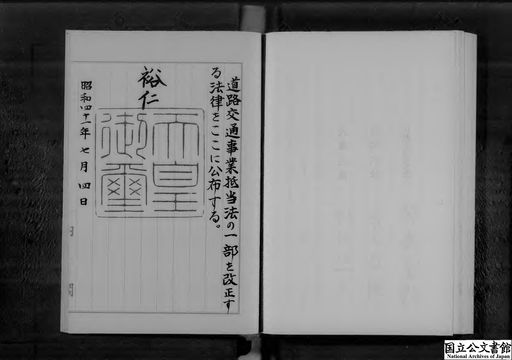 道路交通事業抵当法の一部を改正す
る法律をここに公布する。
裕仁
天皇
御璽
昭和四十一年七月四日
国立公文書館
National Archives of Japan